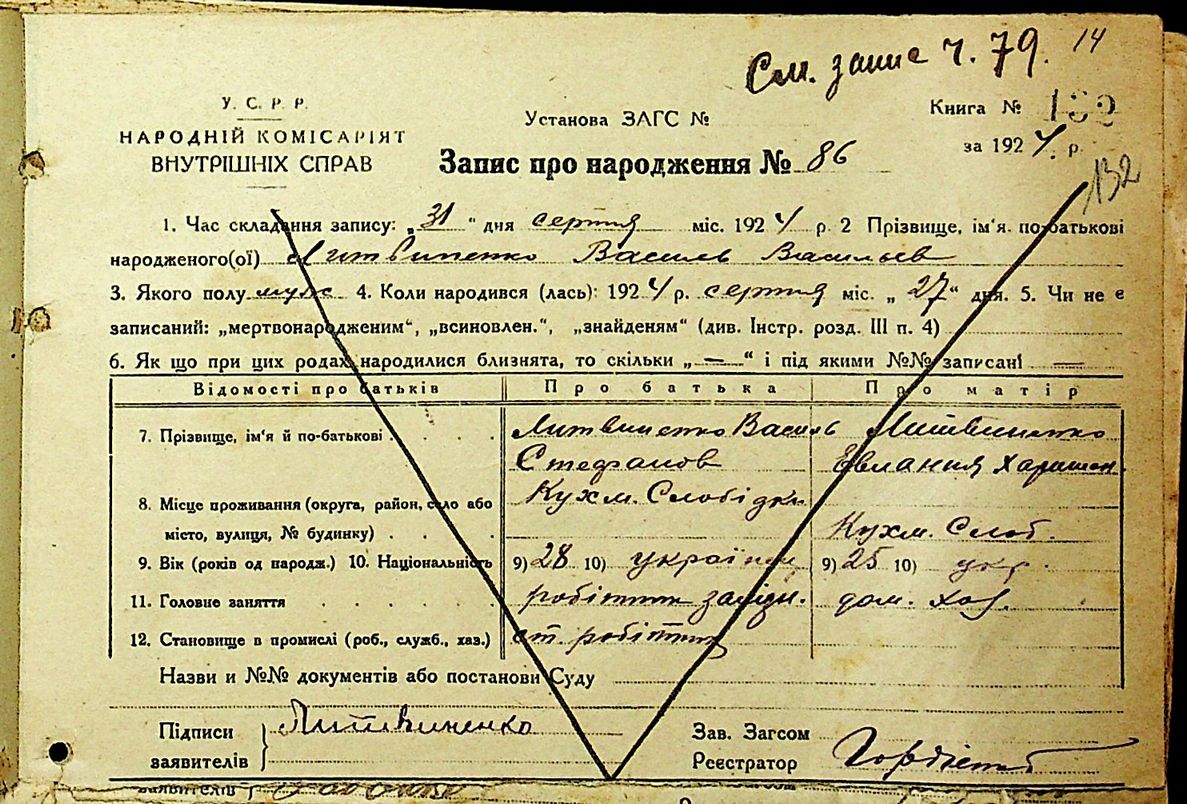 См. запис ч. 79. 14
У. С. Р. Р.
НАРОДНІЙ КОМІСАРІЯТ
ВНУТРІШНІХ СПРАВ
Установа ЗАГС №
Запис про народження № 86
Книга № 132
за 1924 р.
132
1. Час складання запису: „31“ дня серпня міс. 1924 р. 2 Прізвище, ім'я. по-батькові
народженого(ої) Литвиненко Василь Васильев
3. Якого полу муж 4. Коли народився (лась): 1924 р. серпня міс. „27“ дня. 5. Чи не є
записаний: „мертвонародженим“, „всиновлен.“, „знайденям“ (див. Інстр. розд. III п. 4)
6. Як що при цих родах народилися близнята, то скільки „—“ і під якими №№ записані —
Відомості про батьків Про батька Про матір
7. Прізвище, ім'я й по-батькові . . . . Литвиненко Василь Литвиненко
Стефанов Евлания
8. Місце проживання (округа, район, село або Кухм. Слобідки
місто, вулиця, № будинку) . . . . Кухм. Слоб.
9. Вік (років од народж.) 10. Національність 9) 28 10) українец 9) 25 10) укр.
11. Головне заняття . . . . . робітник залізн. дом. хоз.
12. Становище в промислі (роб., служб., хаз.) ст. робітник
Назви и №№ документів або постанови Суду
Підписи
заявителів
Литвиненко
Зав. Загсом
Реєстратор
заявителів